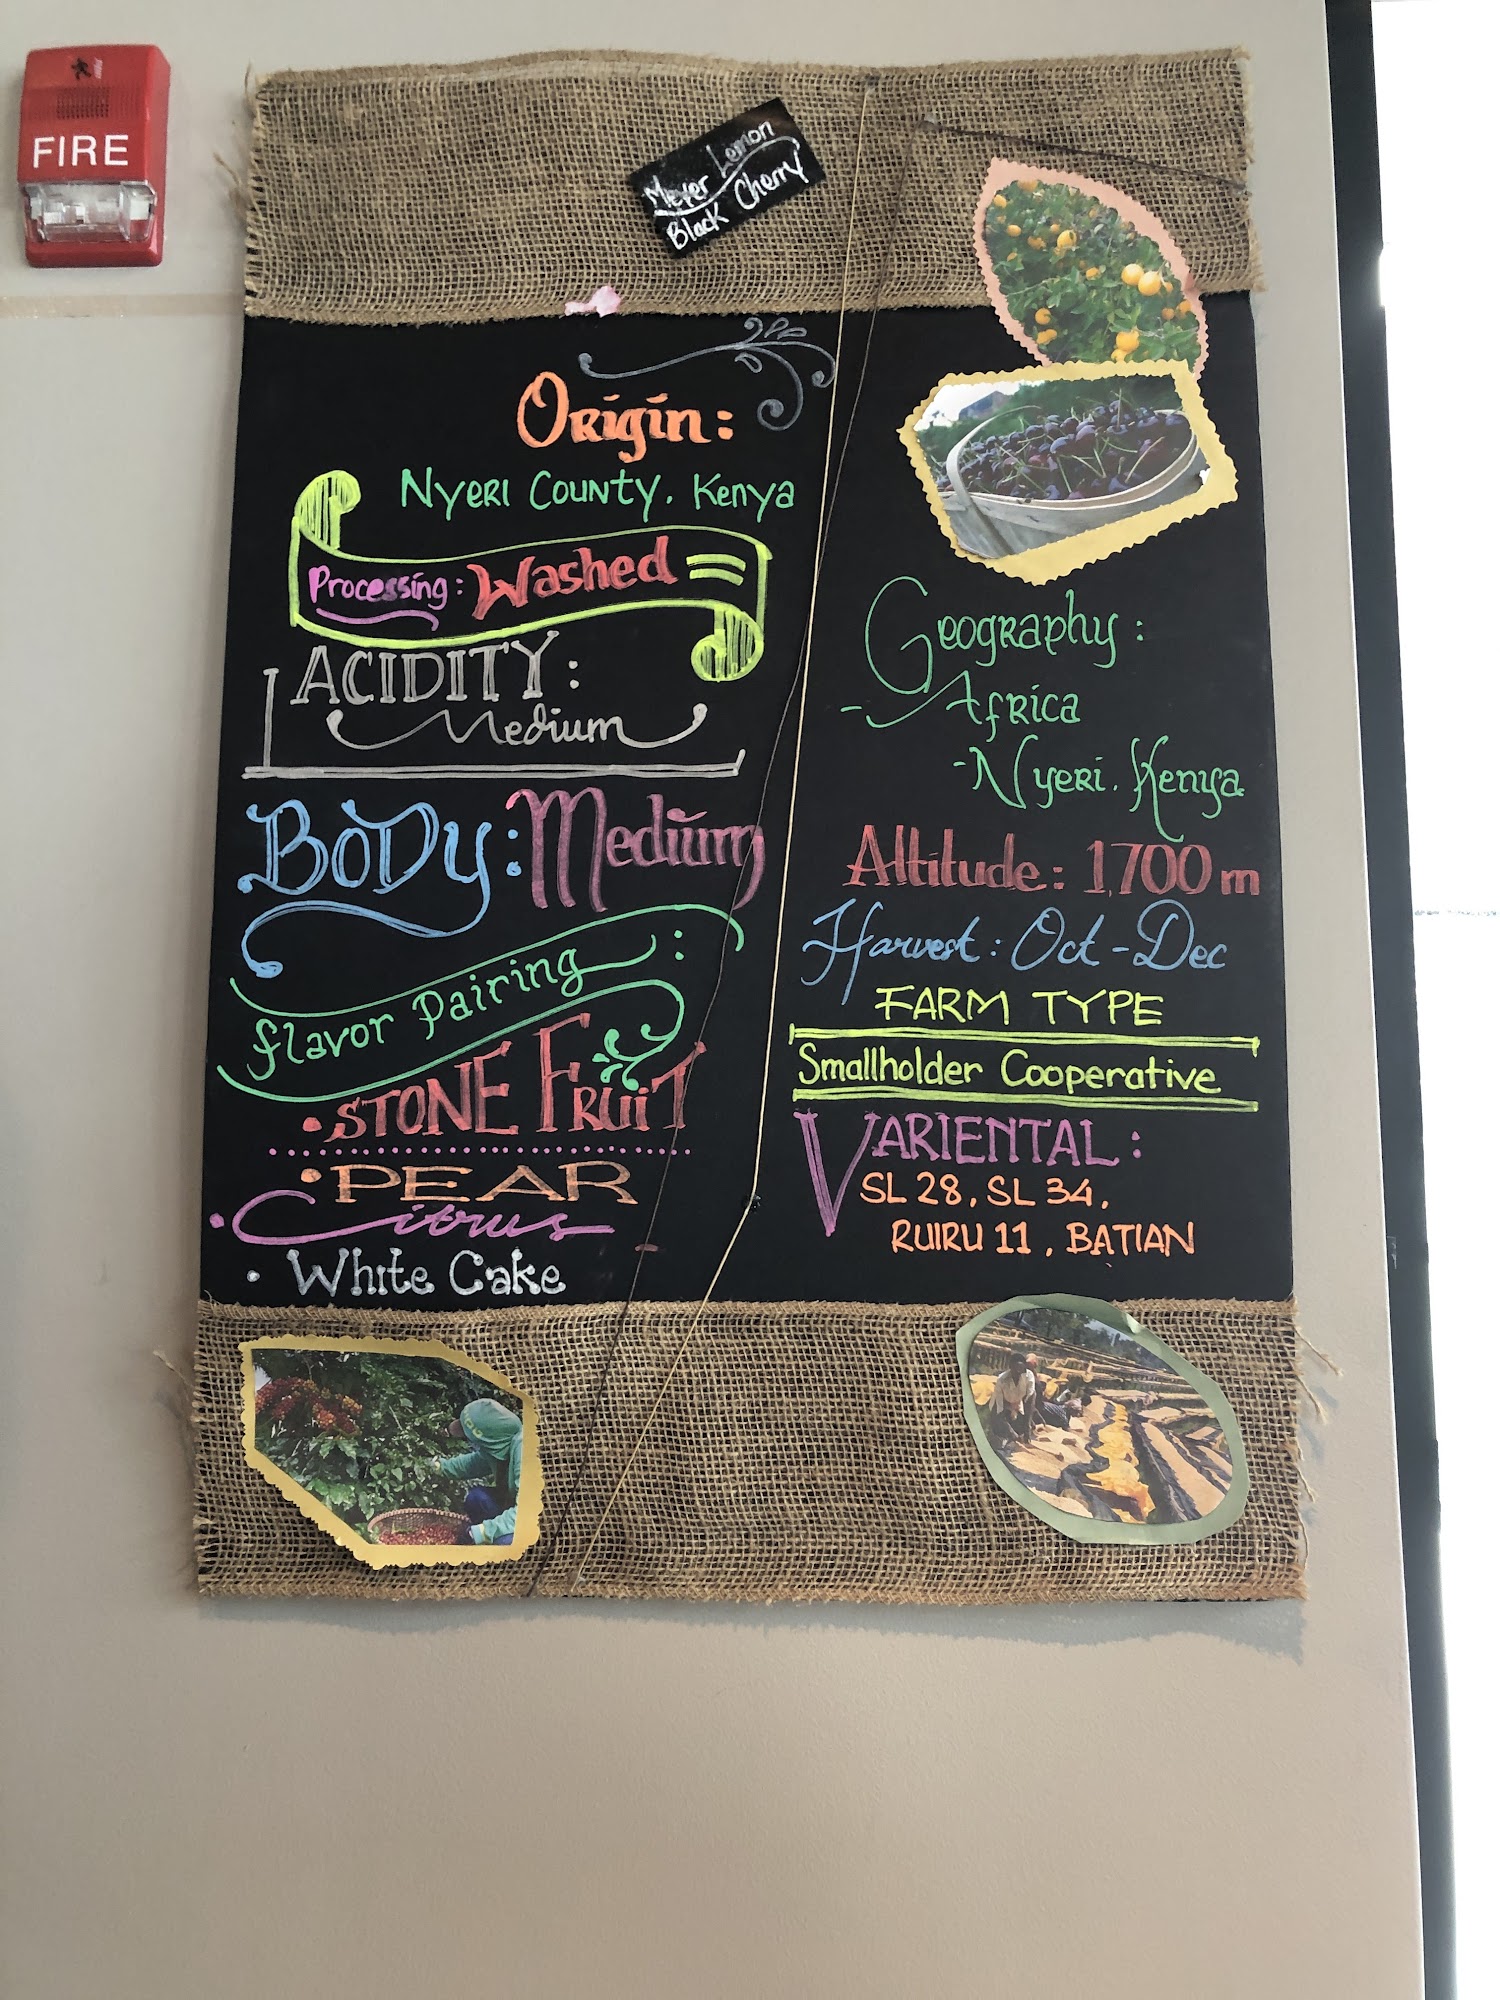 FIRE
Meyer Lemon
Black Cherry
Origin:
Nyeri County, Kenya
Processing: Washed
ACIDITY:
Medium
Body: Medium
flavor Pairing:
• STONE FRUIT
• PEAR
• Citrus
• White Cake
Geography:
- Africa
- Nyeri, Kenya
Altitude: 1,700 m
Harvest: Oct - Dec
FARM TYPE
Smallholder Cooperative
VARIENTAL:
SL 28, SL 34,
RUIRU 11, BATIAN